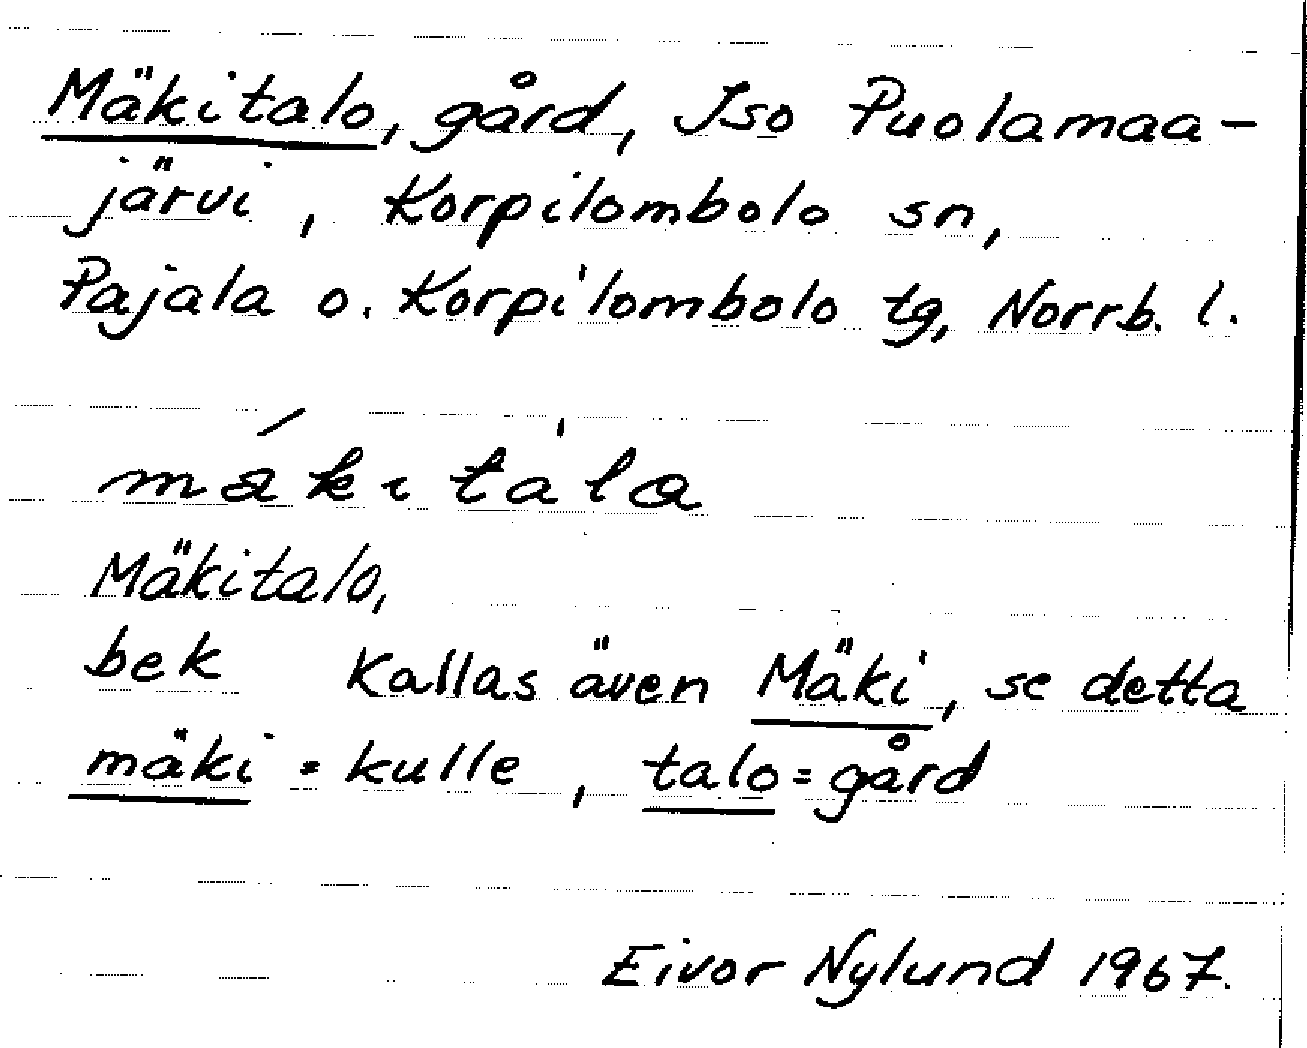 Mäkitalo, gård, Iso Puolamaa-
järvi, Korpilombolo sn,
Pajala o. Korpilombolo tg, Norrb. l.
Mäkitalo,
bek Kallas även Mäki, se detta
mäki = kulle, talo = gård
Eivor Nylund 1967.